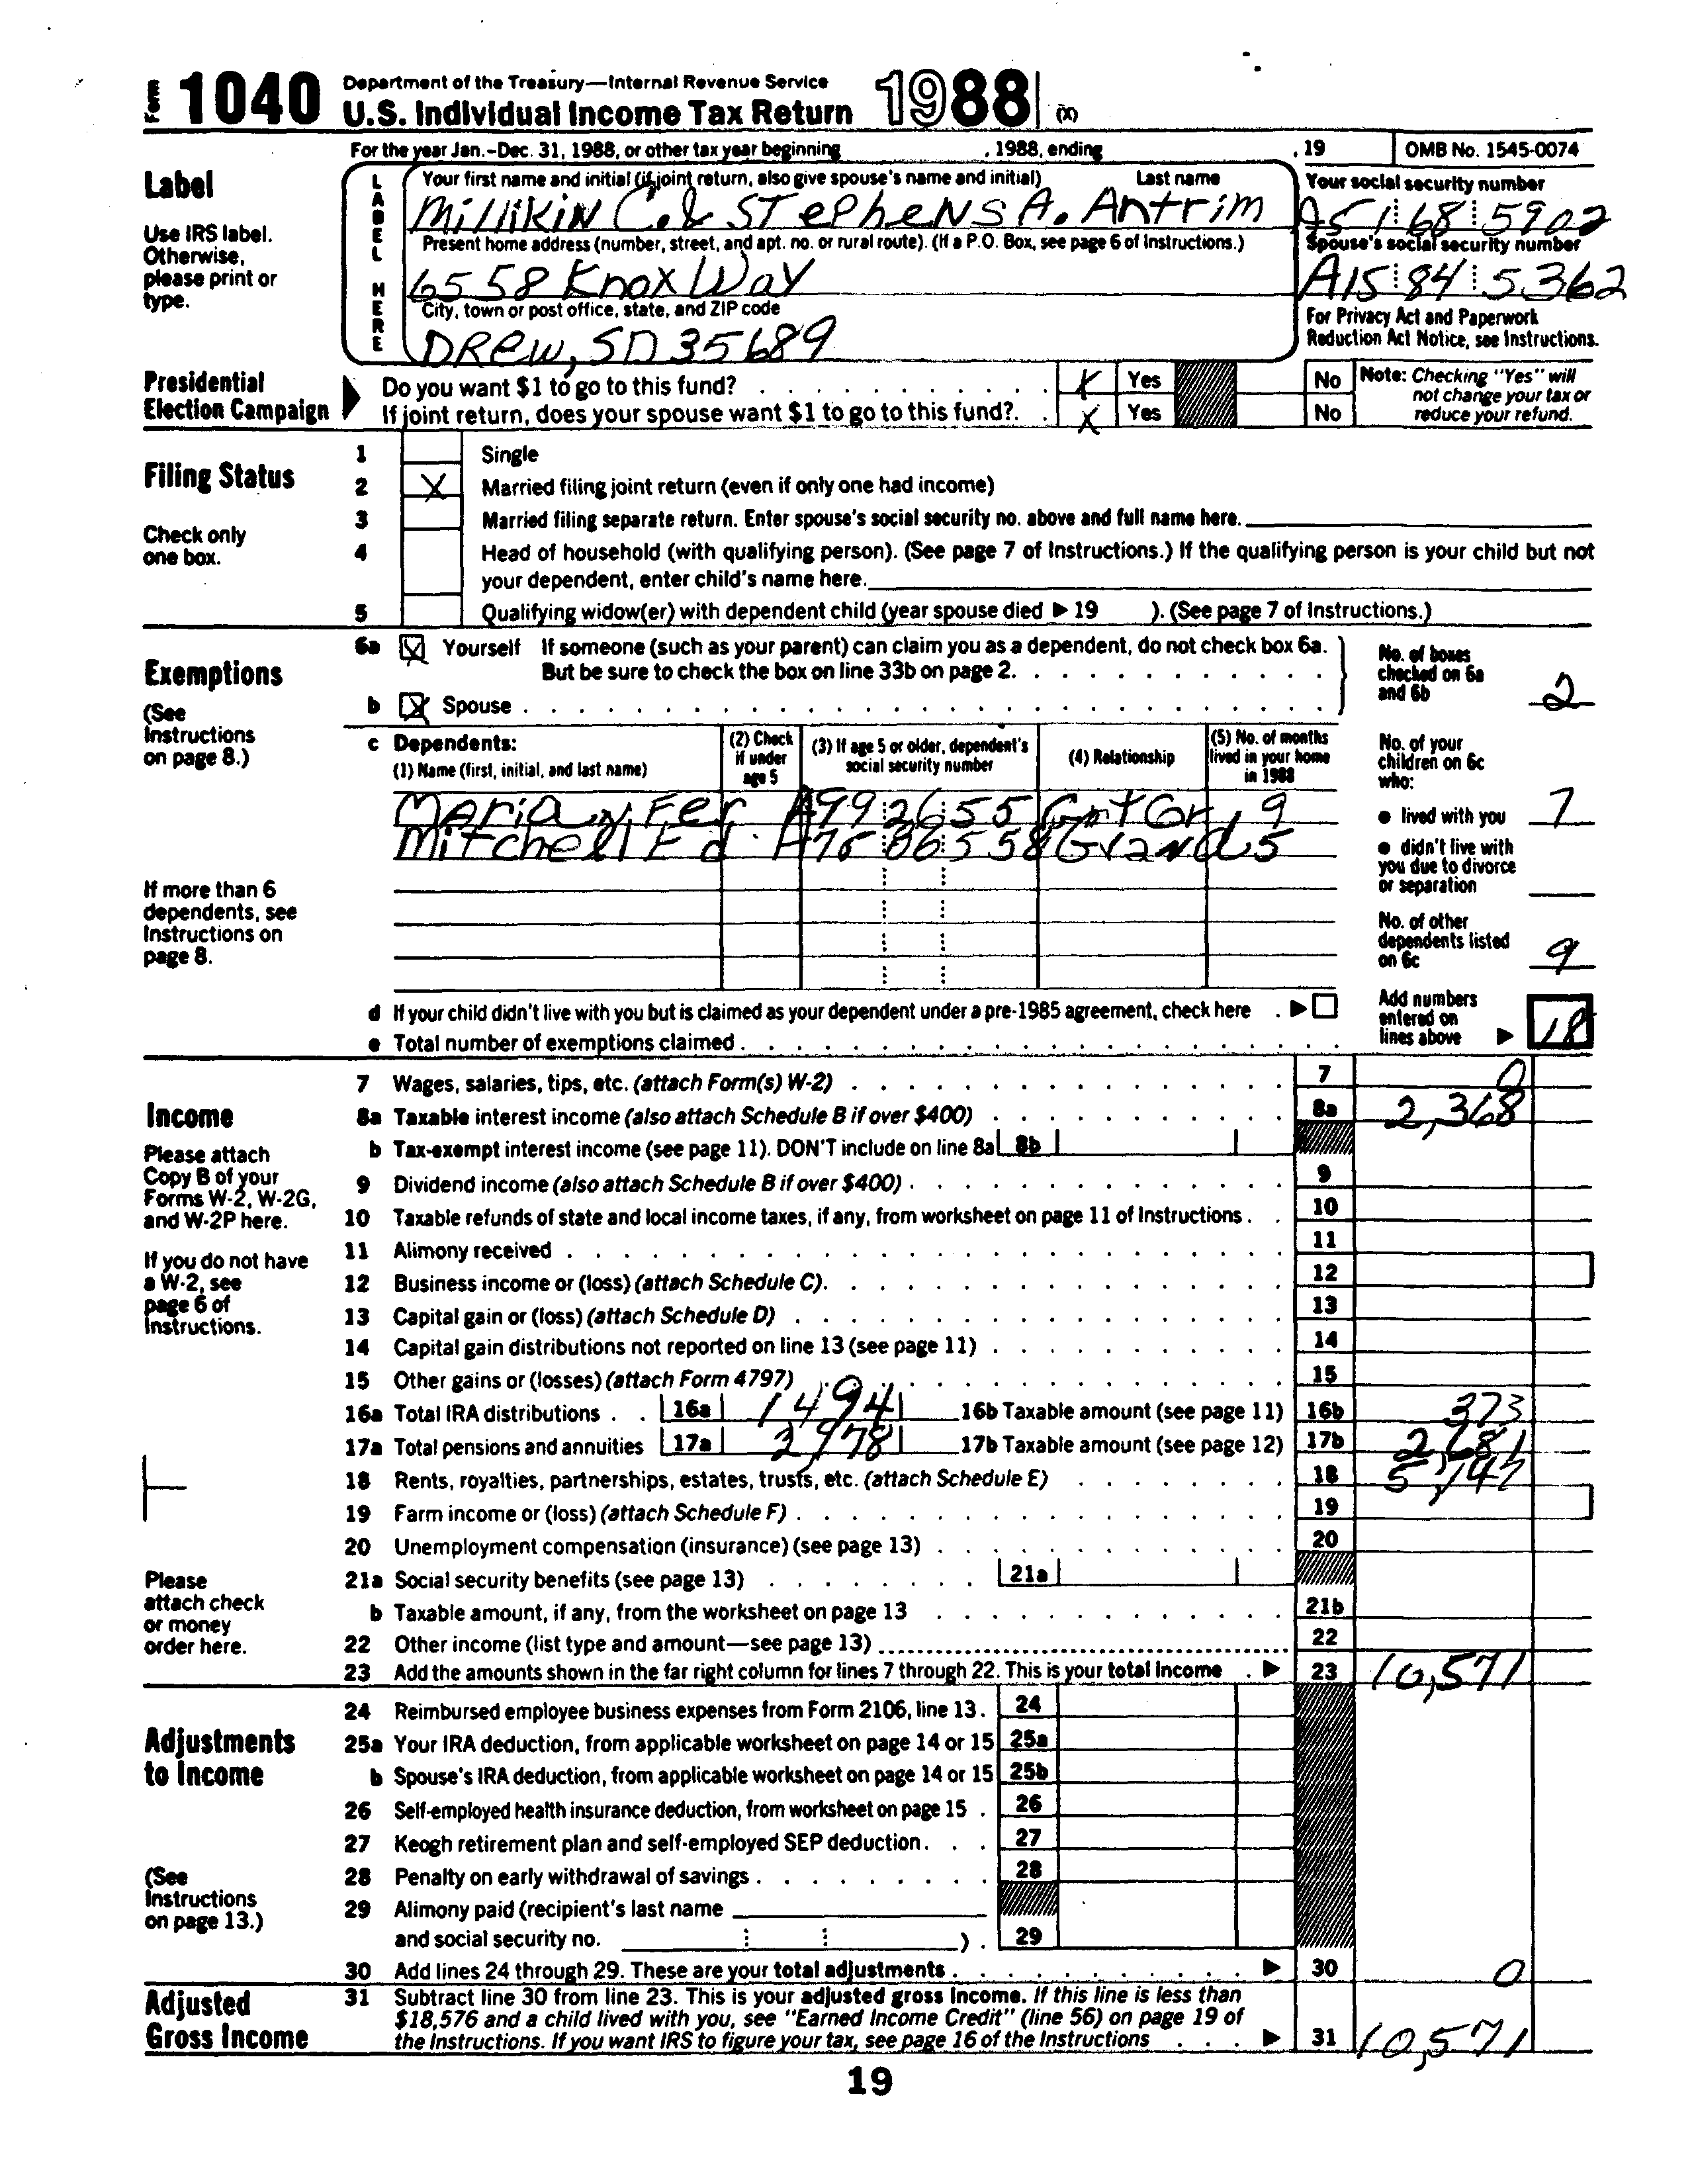 Form 1040 Department of the Treasury—Internal Revenue Service
U.S. Individual Income Tax Return 1988 (X)
For the year Jan.-Dec. 31, 1988, or other tax year beginning , 1988, ending , 19 OMB No. 1545-0074
Label
Use IRS label. Otherwise, please print or type.
LABEL HERE
Your first name and initial (if joint return, also give spouse's name and initial) Last name
Millikin C. & Stephens A. Antrim
Your social security number
A51 68 5902
Present home address (number, street, and apt. no. or rural route). (If a P.O. Box, see page 6 of Instructions.)
6558 Knox Way
Spouse's social security number
A15 84 5362
City, town or post office, state, and ZIP code
Drew, SD 35689
For Privacy Act and Paperwork Reduction Act Notice, see Instructions.
Presidential Election Campaign
Do you want $1 to go to this fund? X Yes No
If joint return, does your spouse want $1 to go to this fund? X Yes No
Note: Checking "Yes" will not change your tax or reduce your refund.
Filing Status
Check only one box.
1 Single
2 X Married filing joint return (even if only one had income)
3 Married filing separate return. Enter spouse's social security no. above and full name here.
4 Head of household (with qualifying person). (See page 7 of Instructions.) If the qualifying person is your child but not
your dependent, enter child's name here.
5 Qualifying widow(er) with dependent child (year spouse died ▶ 19 ). (See page 7 of Instructions.)
Exemptions
(See Instructions on page 8.)
6a X Yourself If someone (such as your parent) can claim you as a dependent, do not check box 6a.
But be sure to check the box on line 33b on page 2.
b X Spouse
No. of boxes checked on 6a and 6b 2
c Dependents:
(1) Name (first, initial, and last name)
(2) Check if under age 5
(3) If age 5 or older, dependent's social security number
(4) Relationship
(5) No. of months lived in your home in 1988
Maria Fer A99 26 55 Gr 9
Mitchell Ed 86 558 Grand 5
No. of your children on 6c who:
● lived with you 7
● didn't live with you due to divorce or separation
No. of other dependents listed on 6c 9
If more than 6 dependents, see Instructions on page 8.
d If your child didn't live with you but is claimed as your dependent under a pre-1985 agreement, check here ▶
e Total number of exemptions claimed
Add numbers entered on lines above ▶ 18
Income
Please attach Copy B of your Forms W-2, W-2G, and W-2P here.
If you do not have a W-2, see page 6 of Instructions.
Please attach check or money order here.
7 Wages, salaries, tips, etc. (attach Form(s) W-2) 7 0
8a Taxable interest income (also attach Schedule B if over $400) 8a 2,368
b Tax-exempt interest income (see page 11). DON'T include on line 8a 8b
9 Dividend income (also attach Schedule B if over $400) 9
10 Taxable refunds of state and local income taxes, if any, from worksheet on page 11 of Instructions 10
11 Alimony received 11
12 Business income or (loss) (attach Schedule C) 12
13 Capital gain or (loss) (attach Schedule D) 13
14 Capital gain distributions not reported on line 13 (see page 11) 14
15 Other gains or (losses) (attach Form 4797) 15
16a Total IRA distributions 16a 1494 16b Taxable amount (see page 11) 16b 373
17a Total pensions and annuities 17a 2,978 17b Taxable amount (see page 12) 17b 2,681
18 Rents, royalties, partnerships, estates, trusts, etc. (attach Schedule E) 18 5,147
19 Farm income or (loss) (attach Schedule F) 19
20 Unemployment compensation (insurance) (see page 13) 20
21a Social security benefits (see page 13) 21a
b Taxable amount, if any, from the worksheet on page 13 21b
22 Other income (list type and amount—see page 13) 22
23 Add the amounts shown in the far right column for lines 7 through 22. This is your total income ▶ 23 10,571
Adjustments to Income
(See Instructions on page 13.)
24 Reimbursed employee business expenses from Form 2106, line 13 24
25a Your IRA deduction, from applicable worksheet on page 14 or 15 25a
b Spouse's IRA deduction, from applicable worksheet on page 14 or 15 25b
26 Self-employed health insurance deduction, from worksheet on page 15 26
27 Keogh retirement plan and self-employed SEP deduction 27
28 Penalty on early withdrawal of savings 28
29 Alimony paid (recipient's last name
and social security no. ) 29
30 Add lines 24 through 29. These are your total adjustments ▶ 30 0
Adjusted Gross Income
31 Subtract line 30 from line 23. This is your adjusted gross income. If this line is less than
$18,576 and a child lived with you, see "Earned Income Credit" (line 56) on page 19 of
the Instructions. If you want IRS to figure your tax, see page 16 of the Instructions ▶ 31 10,571
19